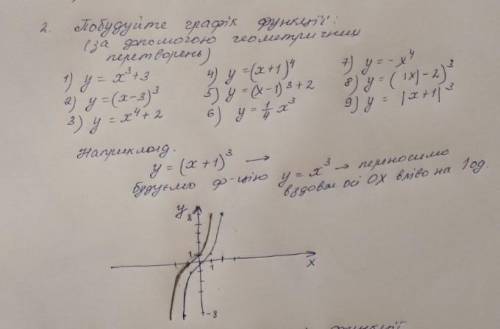 2. Побудуйте графік функції:
(за допомогою геометричних
перетворень)
1) y = x³+3
4) y = (x+1)⁴
7) y = -x⁴
2) y = (x-3)³
5) y = (x-1)³+2
8) y = (|x|-2)³
3) y = x⁴+2
6) y = 1/4 x³
9) y = |x+1|³
Наприклад.
y = (x+1)³ →
будуємо ф-цію y = x³ → переносимо
вздовж осі OX вліво на 1 од.
y
8
1
x
-8
функції